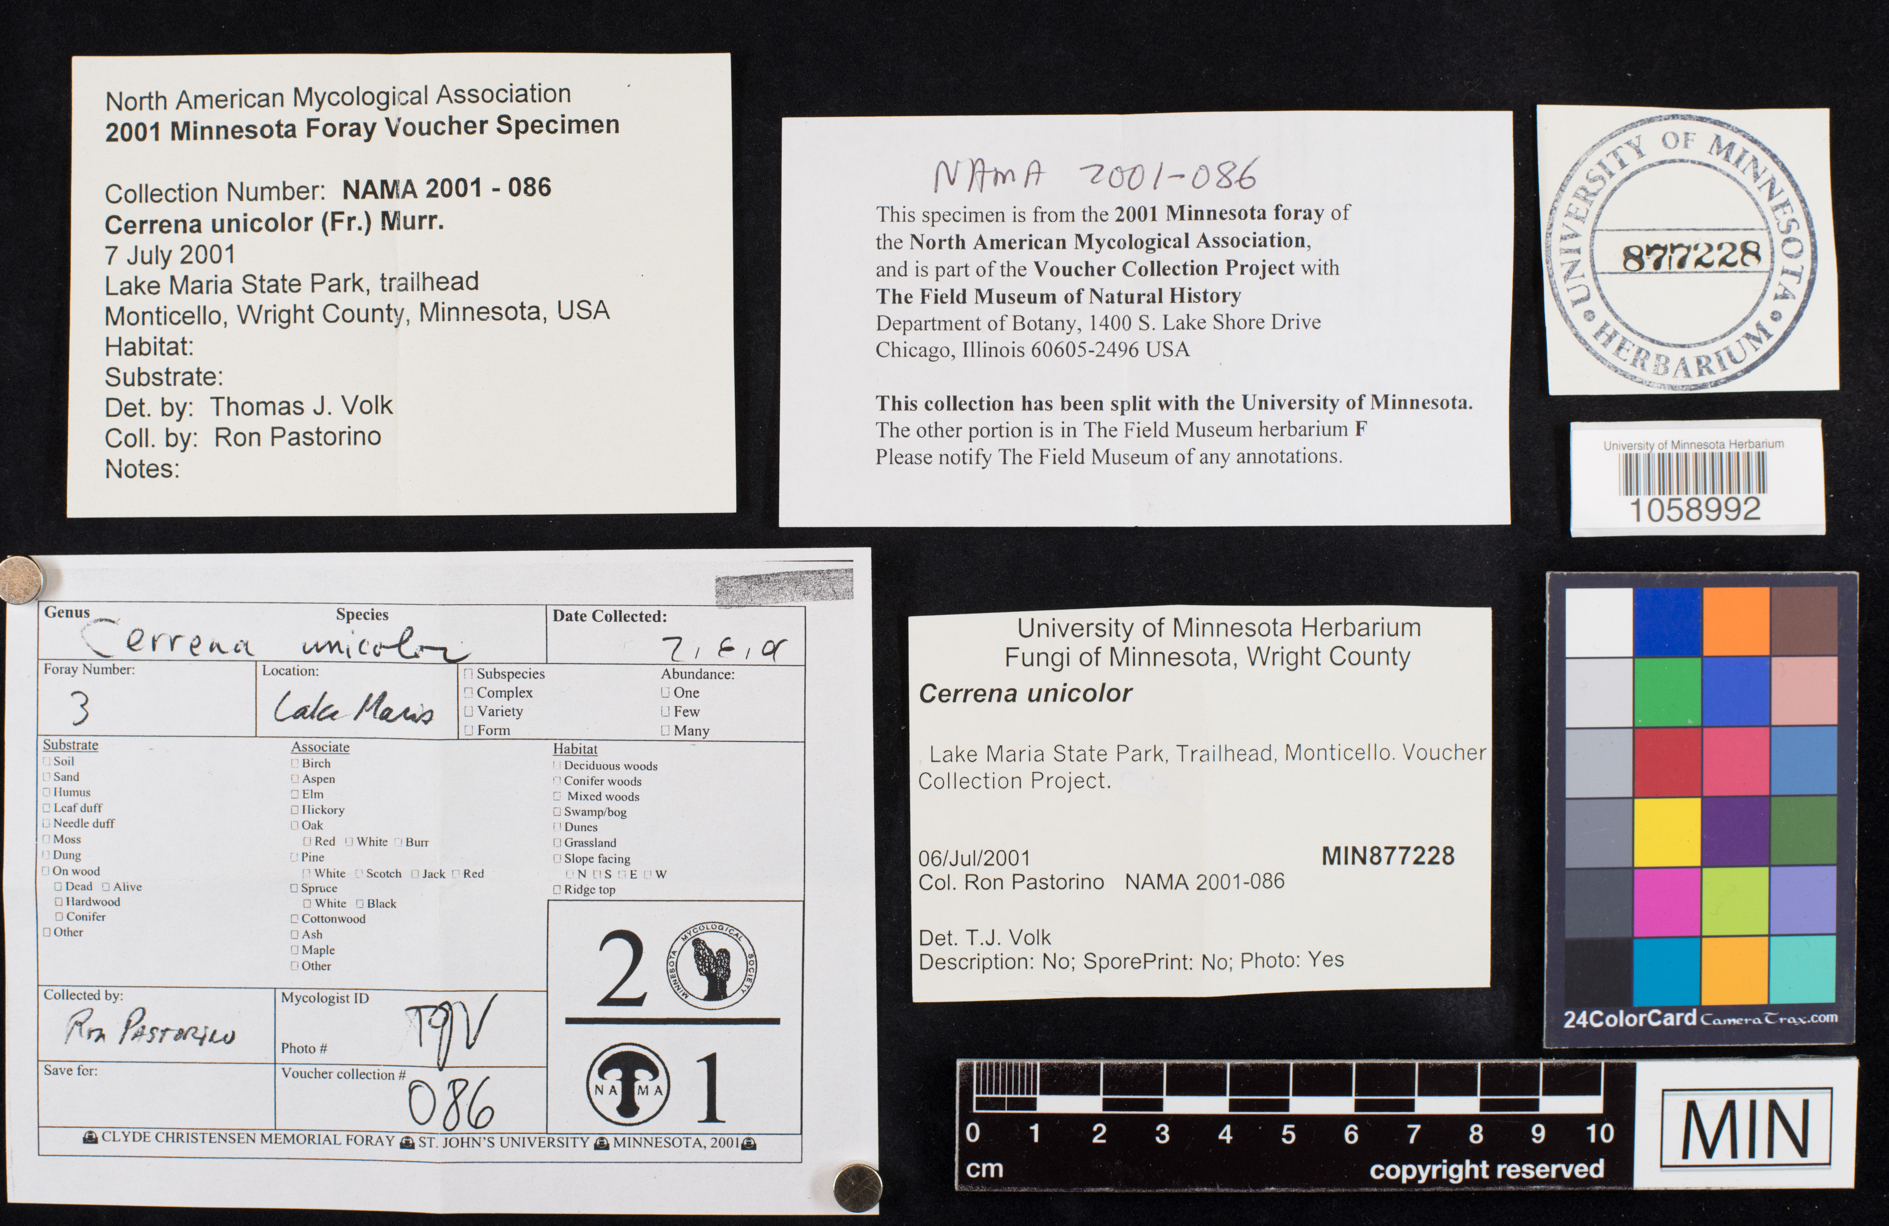 North American Mycological Association
2001 Minnesota Foray Voucher Specimen
Collection Number: NAMA 2001 - 086
Cerrena unicolor (Fr.) Murr.
7 July 2001
Lake Maria State Park, trailhead
Monticello, Wright County, Minnesota, USA
Habitat:
Substrate:
Det. by: Thomas J. Volk
Coll. by: Ron Pastorino
Notes:
NAMA 2001-086
This specimen is from the 2001 Minnesota foray of
the North American Mycological Association,
and is part of the Voucher Collection Project with
The Field Museum of Natural History
Department of Botany, 1400 S. Lake Shore Drive
Chicago, Illinois 60605-2496 USA
This collection has been split with the University of Minnesota.
The other portion is in The Field Museum herbarium F
Please notify The Field Museum of any annotations.
UNIVERSITY OF MINNESOTA
877228
HERBARIUM
University of Minnesota Herbarium
1058992
Genus Species Date Collected:
Cerrena unicolor 7, 6, 01
Foray Number: Location:
3 Lake Maria
Subspecies Abundance:
Complex One
Variety Few
Form Many
Substrate
Soil
Sand
Humus
Leaf duff
Needle duff
Moss
Dung
On wood
Dead Alive
Hardwood
Conifer
Other
Associate
Birch
Aspen
Elm
Hickory
Oak
Red White Burr
Pine
White Scotch Jack Red
Spruce
White Black
Cottonwood
Ash
Maple
Other
Habitat
Deciduous woods
Conifer woods
Mixed woods
Swamp/bog
Dunes
Grassland
Slope facing
N S E W
Ridge top
2 MINNESOTA MYCOLOGICAL SOCIETY
NAMA 1
Collected by:
Ron Pastorino
Mycologist ID
TJV
Photo #
Save for:
Voucher collection #
086
CLYDE CHRISTENSEN MEMORIAL FORAY ST. JOHN'S UNIVERSITY MINNESOTA, 2001
University of Minnesota Herbarium
Fungi of Minnesota, Wright County
Cerrena unicolor
Lake Maria State Park, Trailhead, Monticello. Voucher
Collection Project.
06/Jul/2001 MIN877228
Col. Ron Pastorino NAMA 2001-086
Det. T.J. Volk
Description: No; SporePrint: No; Photo: Yes
24ColorCard CameraTrax.com
0 1 2 3 4 5 6 7 8 9 10
cm copyright reserved
MIN